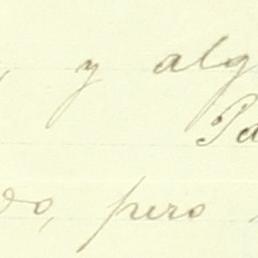 , y alg
Pa
do, pero